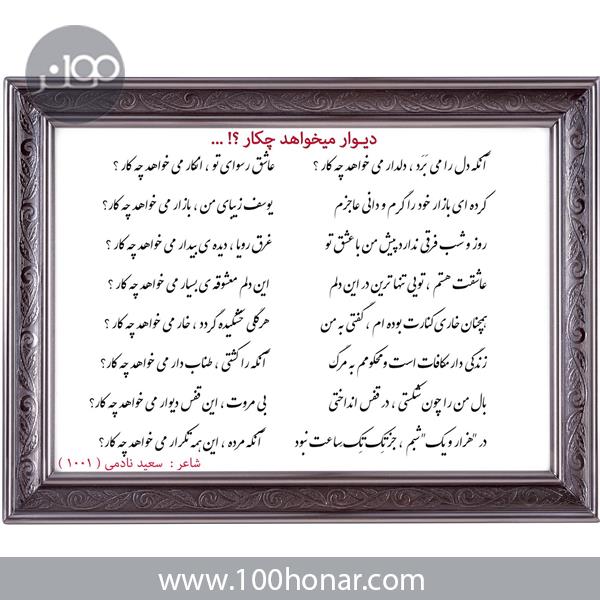 ۱۰۰هنر
دیـوار میخواهد چکار ؟! ...
آنکه دل را می بَرَد ، دلدار می خواهد چه کار ؟ عاشق رسوای تو ، انکار می خواهد چه کار ؟
کرده ای بازار خود را گرم و دانی عاجزم یوسف زیبای من ، بازار می خواهد چه کار؟
روز و شب فرقی ندارد پیش من با عشق تو غرق رویا ، دیده ی بیدار می خواهد چه کار ؟
عاشقت هستم ، تویی تنها ترین در این دلم این دلم معشوقه ی بسیار می خواهد چه کار ؟
همچنان خاری کنارت بوده ام ، گفتی به من هر گلی خشکیده گردد ، خار می خواهد چه کار ؟
زندگی دار مکافات است و محکومم به مرگ آنکه را کشتی ، طناب دار می خواهد چه کار ؟
بال من را چون شکستی ، در قفس انداختی بی مروت ، این قفس دیوار می خواهد چه کار؟
در "هزار و یک" شبم ، جز تِک تِکِ ساعت نبود آنکه مرده ، این همه تکرار می خواهد چه کار؟
شاعر : سعید نادمی ( ۱۰۰۱ )
www.100honar.com